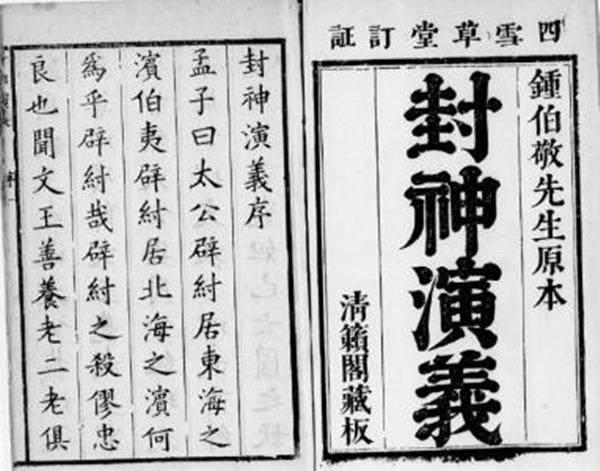 四雪草堂訂証
鍾伯敬先生原本
封神演義
清籟閣藏板
封神演義序
孟子曰太公辟紂居東海之
濱伯夷辟紂居北海之濱何
爲乎辟紂哉辟紂之殺僇忠
良也聞文王善養老二老俱